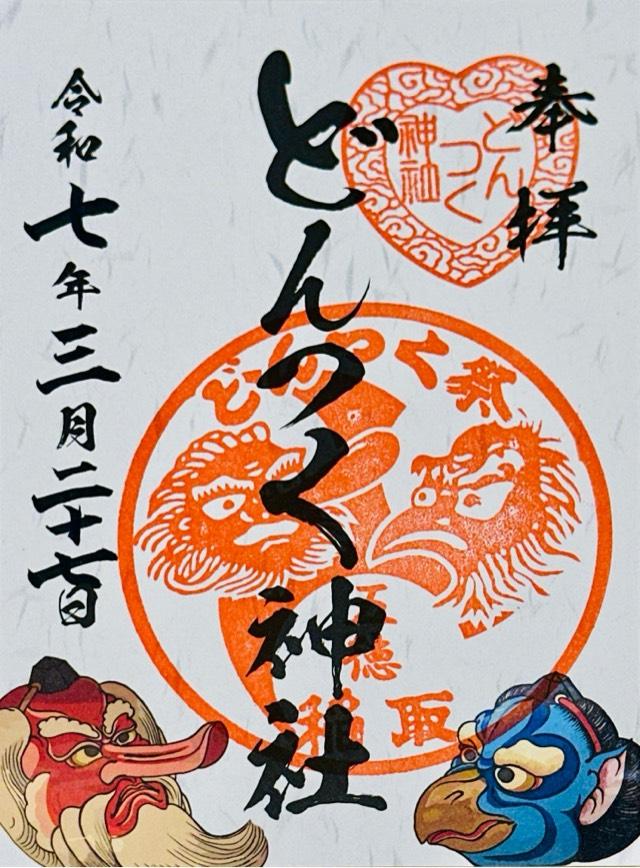 奉拝
どんつく
神社
どんつく神社
どんつく祭
稲取
令和七年三月二十七日